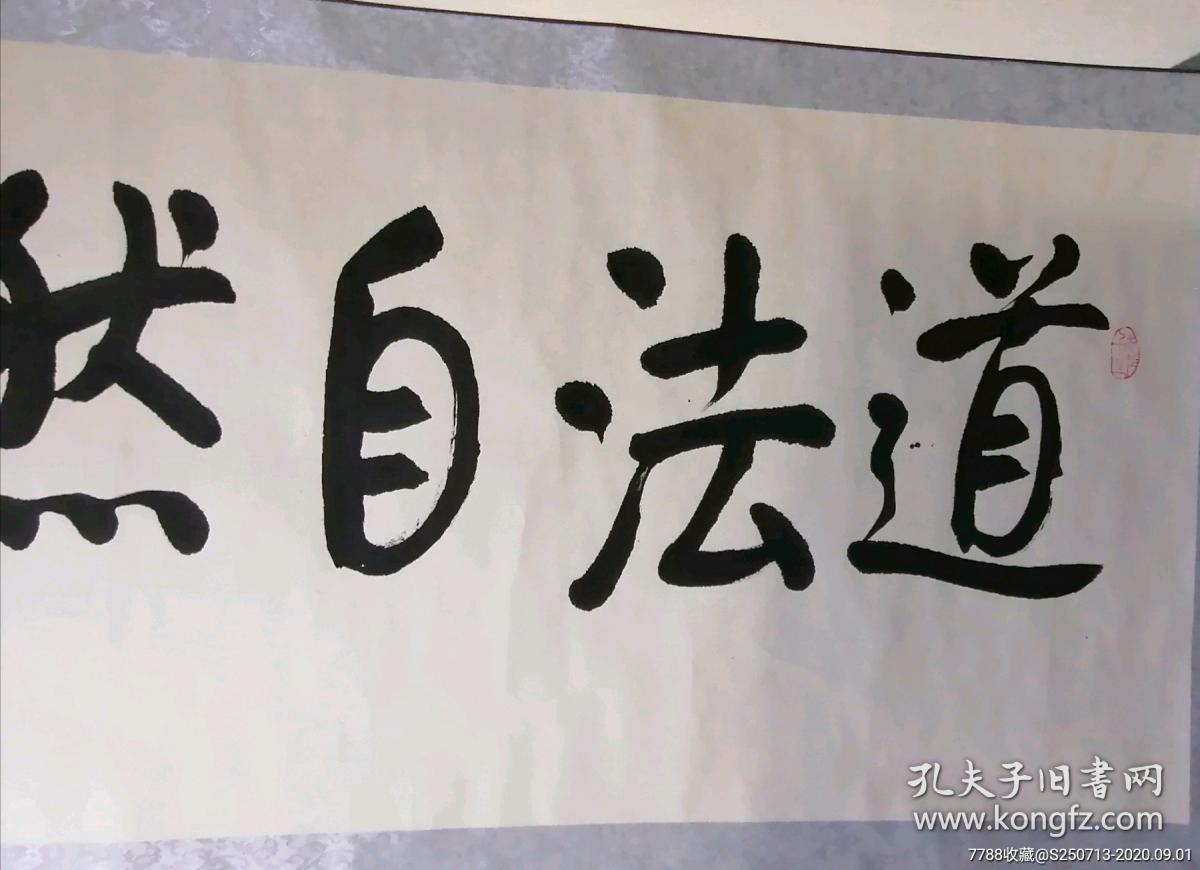 道法自然
孔夫子旧書网
www.kongfz.com
7788收藏@S250713-2020.09.01